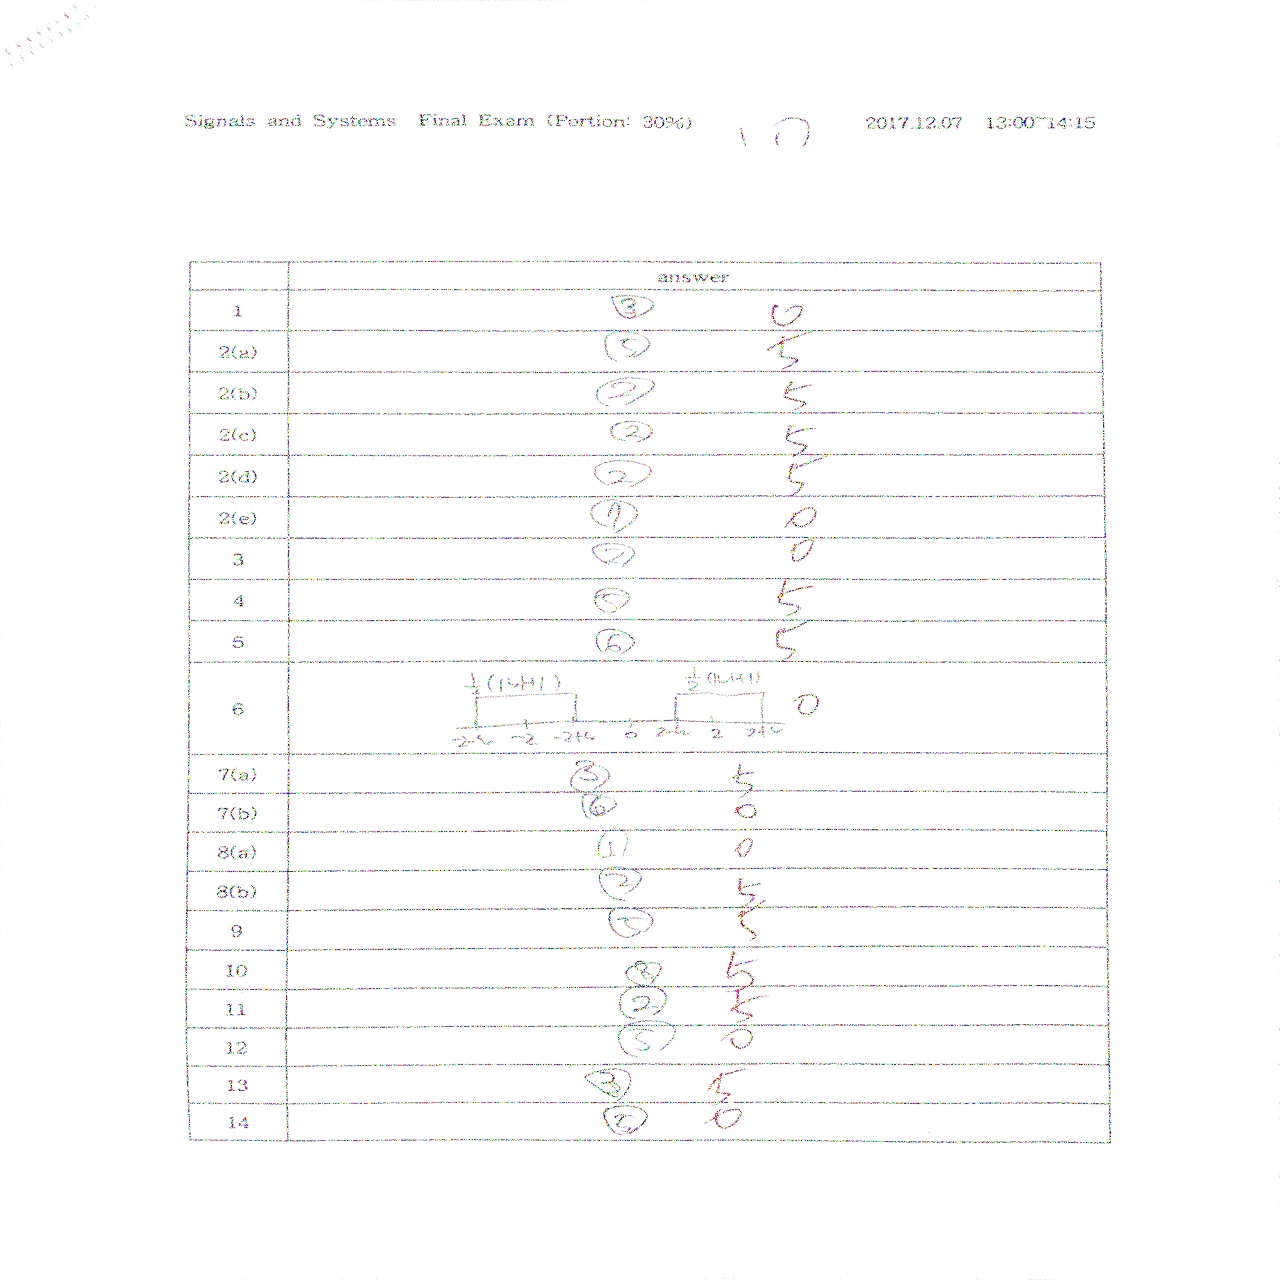 Signals and Systems Final Exam (Portion: 30%) 2017.12.07 13:00~14:15
answer
1 ③ 0
2(a) ⑤ 5
2(b) ② 5
2(c) ② 5
2(d) ② 5
2(e) ⑦ 0
3 ② 0
4 ⑤ 5
5 ⑥ 5
6 0
-2 0 2
7(a) ③ 5
7(b) ⑥ 0
8(a) ① 0
8(b) ② 5
9 ⑤ 5
10 5
11 ② 5
12 ⑤ 0
13 ③ 5
14 0